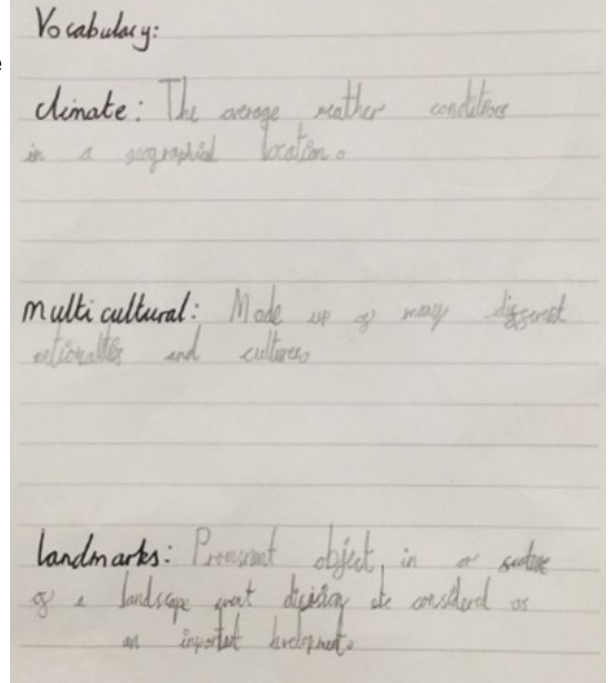 Vocabulary:
climate: The average weather conditions
in a geographical location.
multicultural: Made up of many different
nationalities and cultures.
landmarks: Prominent object, in or
of a landscape event decision etc considered as
an important development.